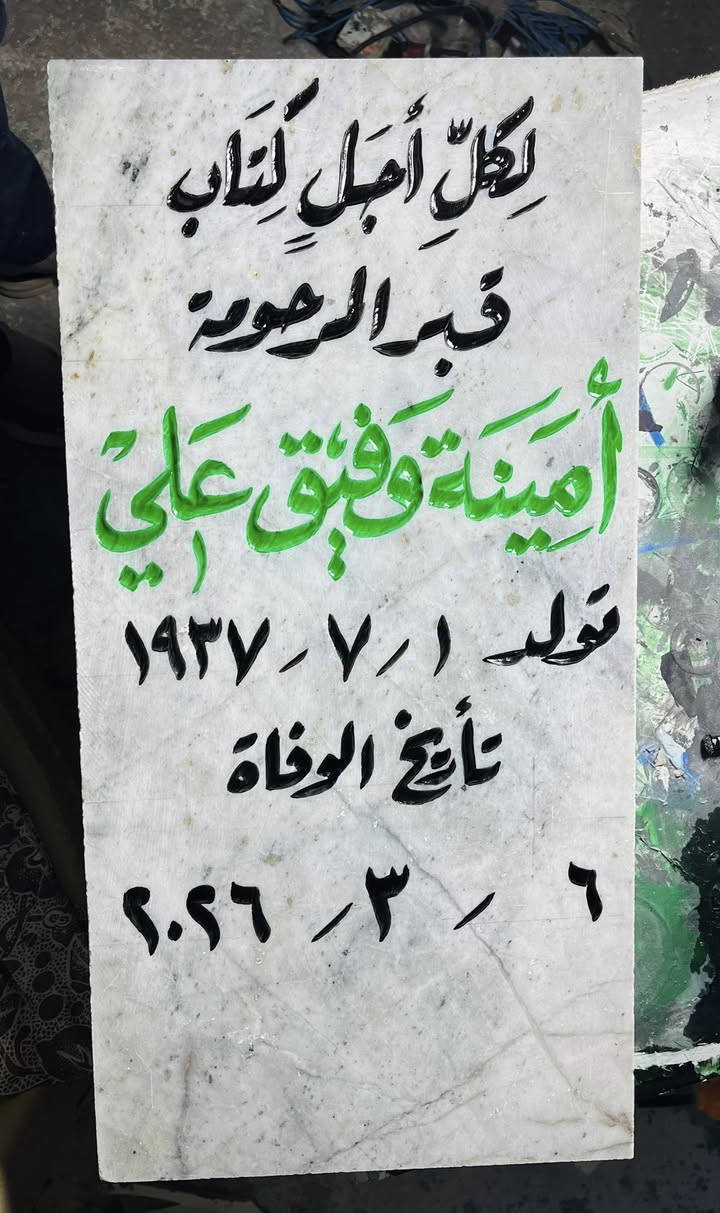 لِكُلِّ أَجَلٍ كِتَاب
قبر المرحومة
أَمِينَة وَفِيق عَلِي
تولد ١ / ٧ / ١٩٣٧
تأريخ الوفاة
٦ / ٣ / ٢٠٢٦